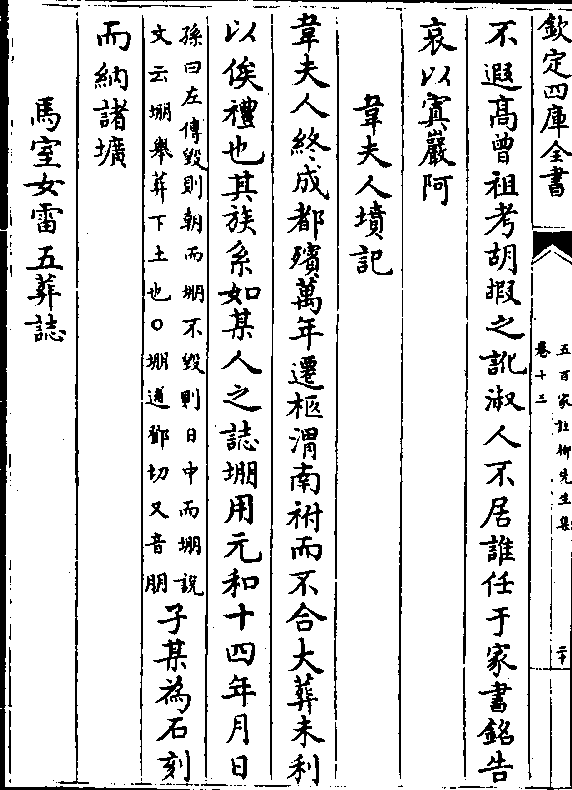 欽定四庫全書
五百家註柳先生集
卷十三
二十
不遐高曾祖考胡嘏之訛淑人不居誰任于家書銘告
哀以寘巖阿
韋夫人墳記
韋夫人終成都殯萬年遷柩渭南祔而不合大葬未利
以俟禮也其族系如某人之誌堋用元和十四年月日
孫曰左傳毀則朝而堋不毀則日中而堋說
文云堋舉葬下土也○堋逋鄧切又音朋
子某為石刻
而納諸壙
馬室女雷五葬誌